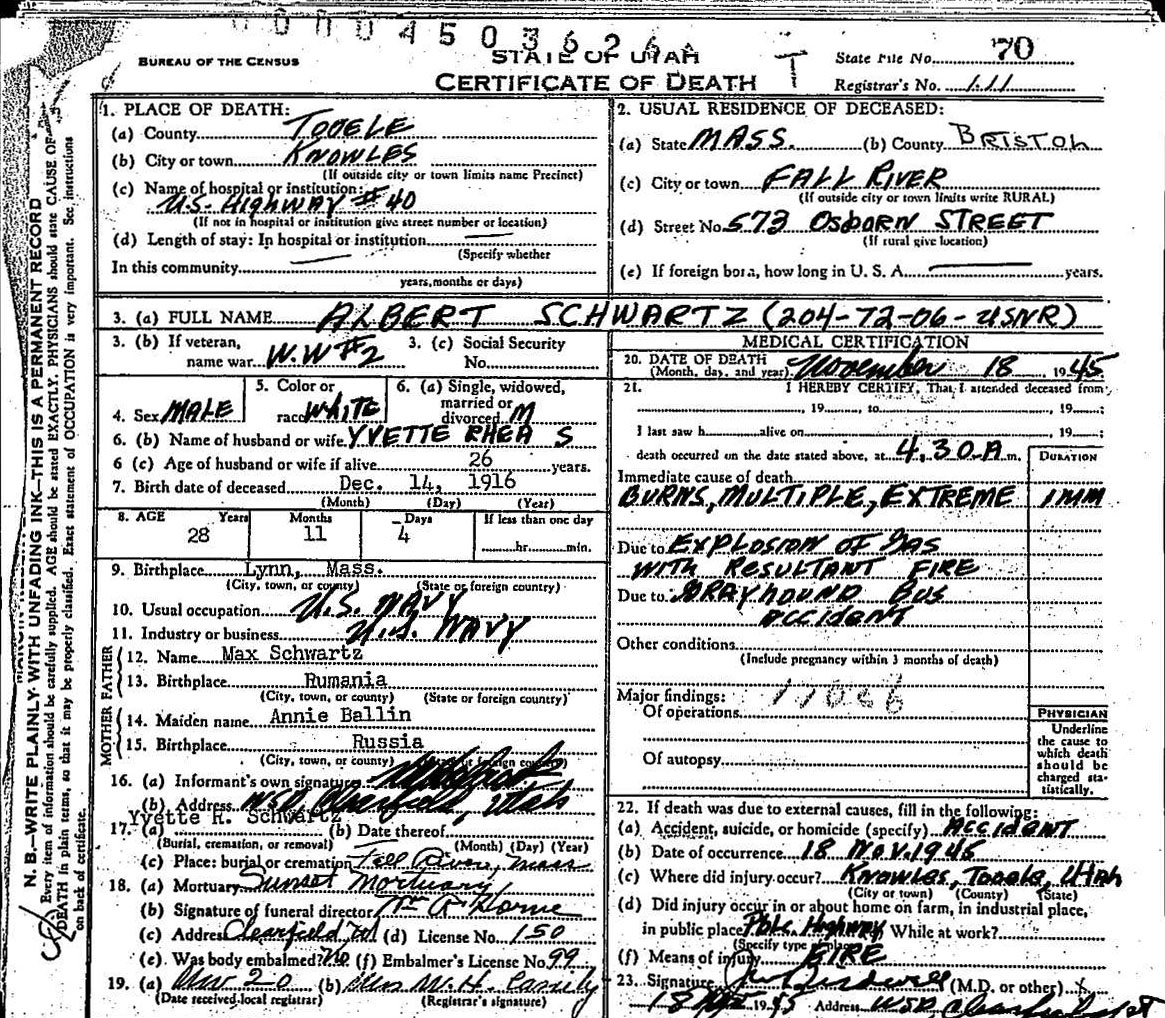 0004503626
STATE OF UTAH
BUREAU OF THE CENSUS
CERTIFICATE OF DEATH
T
State File No. 70
Registrar's No. 111
N. B.—WRITE PLAINLY WITH UNFADING INK—THIS IS A PERMANENT RECORD
Every item of information should be carefully supplied. AGE should be stated EXACTLY. PHYSICIANS should state CAUSE OF
DEATH in plain terms, so that it may be properly classified. Exact statement of OCCUPATION is very important. See instructions
on back of certificate.
1. PLACE OF DEATH:
(a) County TOOELE
(b) City or town KNOWLES
(If outside city or town limits name Precinct)
(c) Name of hospital or institution:
U.S. HIGHWAY #40
(If not in hospital or institution give street number or location)
(d) Length of stay: In hospital or institution
(Specify whether
In this community
years, months or days)
2. USUAL RESIDENCE OF DECEASED:
(a) State MASS. (b) County BRISTOL
(c) City or town FALL RIVER
(If outside city or town limits write RURAL)
(d) Street No. 573 OSBORN STREET
(If rural give location)
(e) If foreign born, how long in U. S. A. years.
3. (a) FULL NAME ALBERT SCHWARTZ (204-72-06-USNR)
3. (b) If veteran, name war W.W #2 3. (c) Social Security No.
4. Sex MALE 5. Color or race WHITE 6. (a) Single, widowed, married or divorced M
6. (b) Name of husband or wife YVETTE RHEA S
6 (c) Age of husband or wife if alive 26 years.
7. Birth date of deceased Dec. 14, 1916
(Month) (Day) (Year)
8. AGE Years Months Days If less than one day
28 11 4 hr. min.
9. Birthplace Lynn, Mass.
(City, town, or county) (State or foreign country)
10. Usual occupation U.S. NAVY
11. Industry or business U.S. NAVY
FATHER
12. Name Max Schwartz
13. Birthplace Rumania
(City, town, or county) (State or foreign country)
MOTHER
14. Maiden name Annie Ballin
15. Birthplace Russia
(City, town, or county)
16. (a) Informant's own signature
(b) Address NSD Clearfield, Utah
Yvette R. Schwartz
17. (a) (b) Date thereof
(Burial, cremation, or removal) (Month) (Day) (Year)
(c) Place: burial or cremation Fall River, Mass
18. (a) Mortuary Sunset Mortuary
(b) Signature of funeral director
(c) Address Clearfield (d) License No. 150
(e) Was body embalmed? No (f) Embalmer's License No. 99
19. (a) Nov 20 (b)
(Date received local registrar) (Registrar's signature)
MEDICAL CERTIFICATION
20. DATE OF DEATH November 18 1945
(Month, day, and year)
21. I HEREBY CERTIFY, That I attended deceased from
, 19 , to , 19 ;
I last saw h alive on , 19 ;
death occurred on the date stated above, at 4:30 A m.
DURATION
Immediate cause of death
BURNS, MULTIPLE, EXTREME IMM
Due to EXPLOSION OF GAS
WITH RESULTANT FIRE
Due to GRAYHOUND BUS
ACCIDENT
Other conditions
(Include pregnancy within 3 months of death)
Major findings:
Of operations
Of autopsy
PHYSICIAN
Underline
the cause to
which death
should be
charged sta-
tistically.
22. If death was due to external causes, fill in the following:
(a) Accident, suicide, or homicide (specify) ACCIDENT
(b) Date of occurrence 18 NOV. 1945
(c) Where did injury occur? Knowles, Tooele, Utah
(City or town) (County) (State)
(d) Did injury occur in or about home on farm, in industrial place,
in public place Pblc. Highway While at work?
(Specify type place)
(f) Means of injury FIRE
23. Signature (M.D. or other)
1945 Address